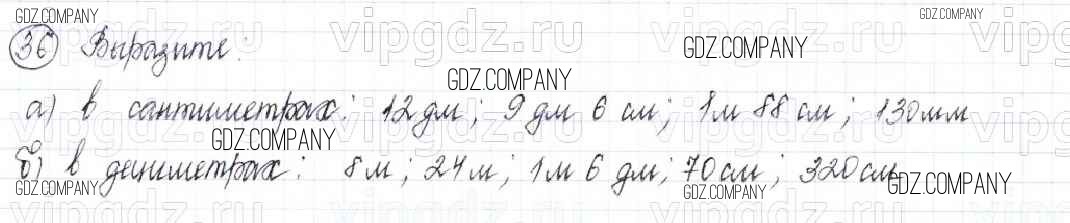 GDZ.COMPANY GDZ.COMPANY
vipgdz.ru vipgdz.ru vipgdz
36 Выразите:
GDZ.COMPANY
GDZ.COMPANY
а) в сантиметрах: 12 дм; 9 дм 6 см; 1 м 88 см; 130 мм
GDZ.COMPANY
б) в дециметрах: 8 м; 24 м; 1 м 6 дм; 70 см; 320 см
GDZ.COMPANY GDZ.COMPANY GDZ.COMPANY